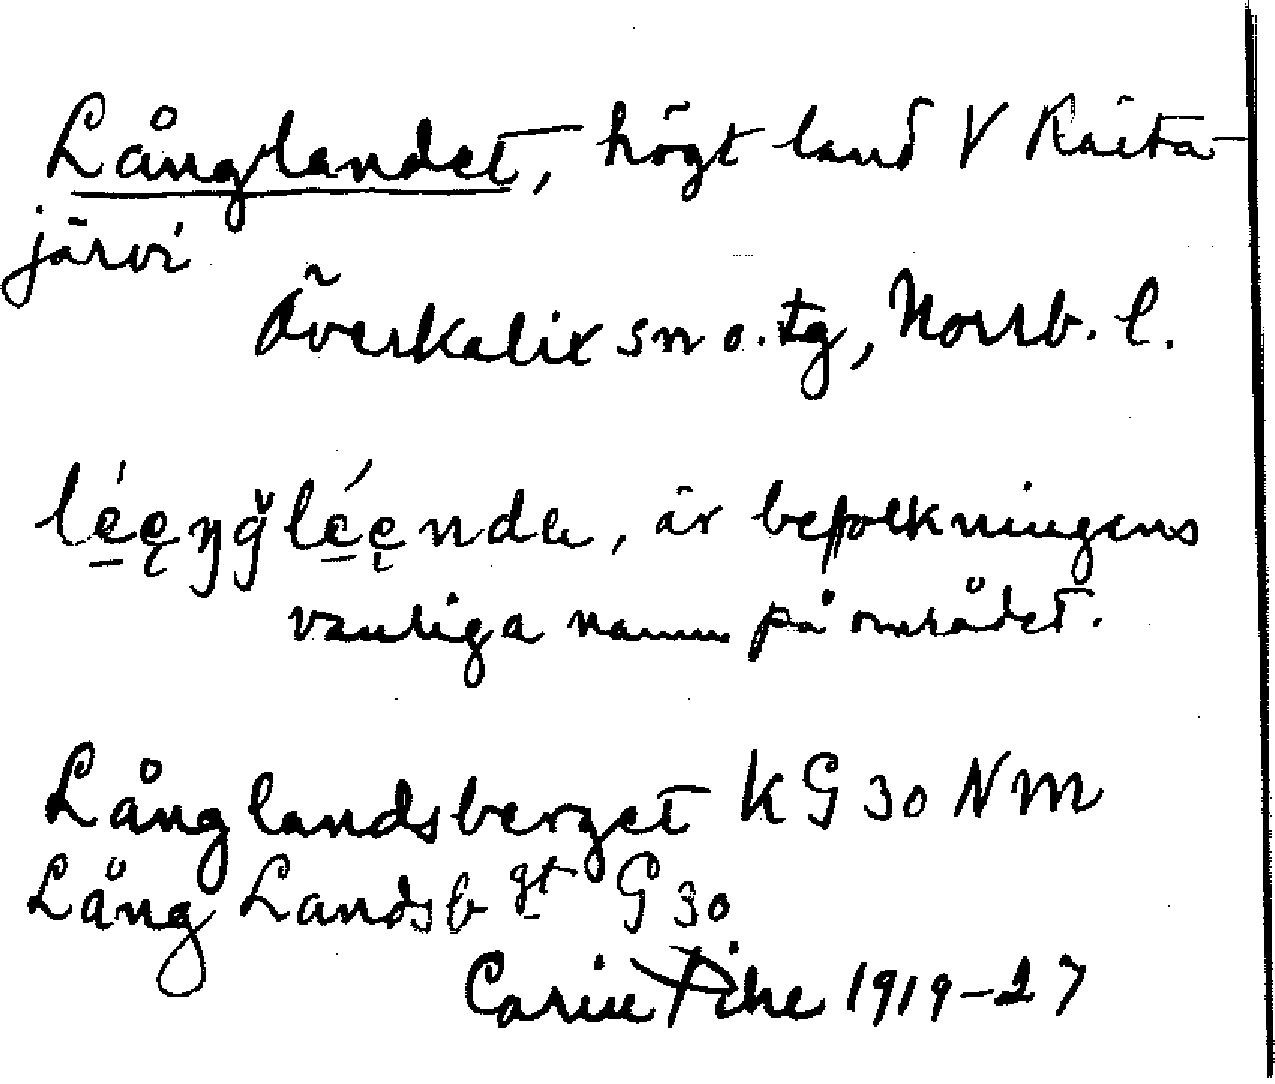 Långlandet, högt land V Raita-
järvi
Överkalix sn o. tg, Norrb. l.
lé̱ęŋğlé̱ęnda, är befolkningens
vanliga namn på området.
Långlandsberget KG 30 NM
Lång Landsbgt G 30
Carin Pihl 1919-27